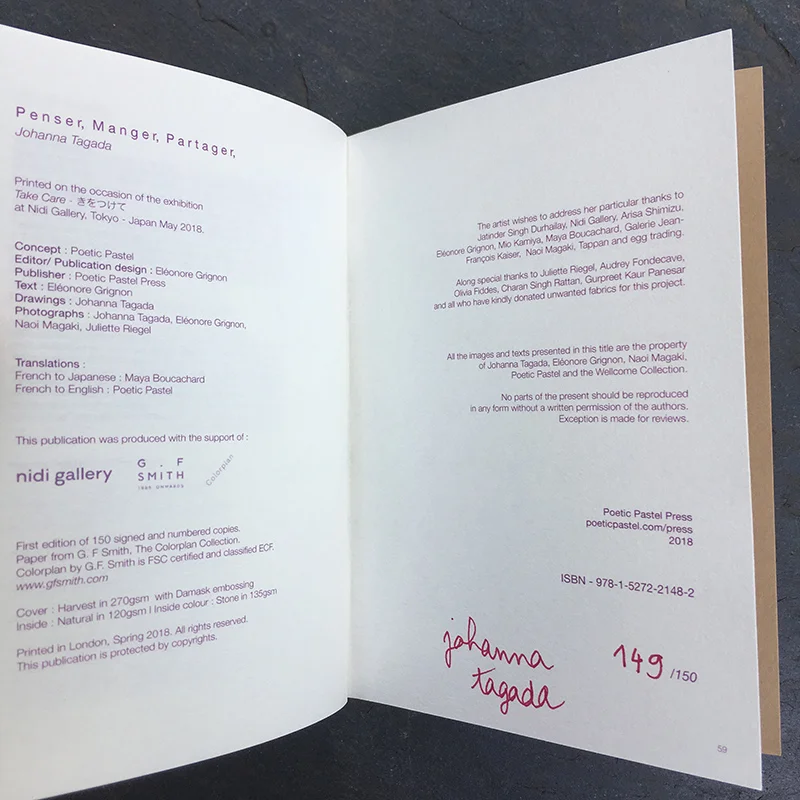 Penser, Manger, Partager,
Johanna Tagada
Printed on the occasion of the exhibition
Take Care - きをつけて
at Nidi Gallery, Tokyo - Japan May 2018.
Concept : Poetic Pastel
Editor/ Publication design : Eléonore Grignon
Publisher : Poetic Pastel Press
Text : Eléonore Grignon
Drawings : Johanna Tagada
Photographs : Johanna Tagada, Eléonore Grignon,
Naoi Magaki, Juliette Riegel
Translations :
French to Japanese : Maya Boucachard
French to English : Poetic Pastel
This publication was produced with the support of :
nidi gallery
G . F
SMITH
1885 ONWARDS
Colorplan
First edition of 150 signed and numbered copies.
Paper from G. F Smith, The Colorplan Collection.
Colorplan by G.F. Smith is FSC certified and classified ECF.
www.gfsmith.com
Cover : Harvest in 270gsm with Damask embossing
Inside : Natural in 120gsm I Inside colour : Stone in 135gsm
Printed in London, Spring 2018. All rights reserved.
This publication is protected by copyrights.
The artist wishes to address her particular thanks to
Jatinder Singh Durhailay, Nidi Gallery, Arisa Shimizu,
Eléonore Grignon, Mio Kamiya, Maya Boucachard, Galerie Jean-
François Kaiser, Naoi Magaki, Tappan and egg trading.
Along special thanks to Juliette Riegel, Audrey Fondecave,
Olivia Fiddes, Charan Singh Rattan, Gurpreet Kaur Panesar
and all who have kindly donated unwanted fabrics for this project.
All the images and texts presented in this title are the property
of Johanna Tagada, Eléonore Grignon, Naoi Magaki,
Poetic Pastel and the Wellcome Collection.
No parts of the present should be reproduced
in any form without a written permission of the authors.
Exception is made for reviews.
Poetic Pastel Press
poeticpastel.com/press
2018
ISBN - 978-1-5272-2148-2
johanna
tagada
149 /150
59